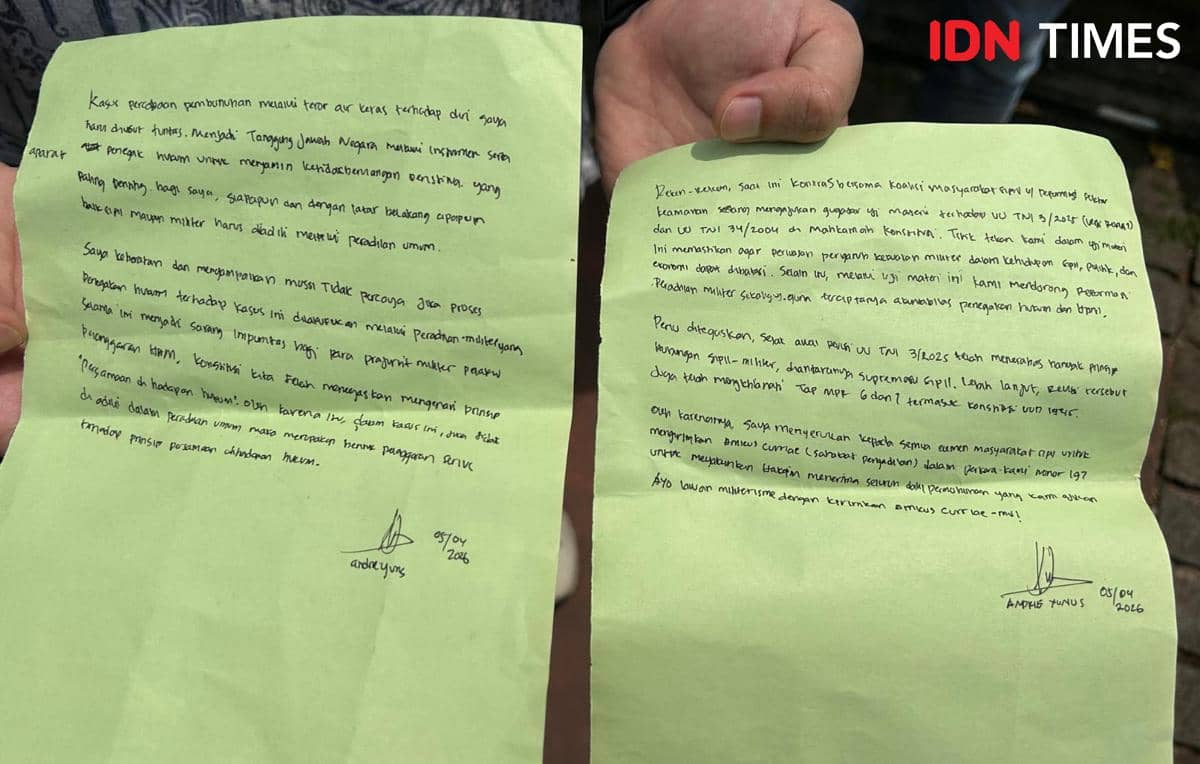 IDN TIMES
Kasus percobaan pembunuhan melalui teror air keras terhadap diri saya
harus diusut tuntas. Menjadi Tanggung Jawab Negara melalui instrumen serta
aparat penegak hukum untuk menjamin ketidakberulangan peristiwa. yang
paling penting bagi saya, siapapun dan dengan latar belakang apapun
baik sipil maupun militer harus diadili melalui peradilan umum.
Saya keberatan dan menyampaikan mosi Tidak percaya jika proses
penegakan hukum terhadap kasus ini dilakukan melalui peradilan militer yang
selama ini menjadi sarang impunitas bagi para prajurit militer pelaku
pelanggaran HAM. konstitusi kita telah menegaskan mengenai prinsip
"persamaan di hadapan hukum". oleh karena itu, dalam kasus ini, jika tidak
di adili dalam peradilan umum maka merupakan bentuk pelanggaran serius
terhadap prinsip persamaan dihadapan hukum.
05/04
2026
andrie yunus
Rekan-rekan, saat ini KontraS bersama koalisi masyarakat sipil u/ reformasi sektor
keamanan sedang mengajukan gugatan uji materi terhadap UU TNI 3/2025
dan UU TNI 34/2004 di Mahkamah Konstitusi. Titik tekan kami dalam uji materi
ini memastikan agar perluasan pengaruh kekuatan militer dalam kehidupan sipil, politik, dan
ekonomi dapat dibatasi. Selain itu, melalui uji materi ini kami mendorong Reformasi
Peradilan militer sekaligus guna terciptanya akuntabilitas penegakan hukum dan
Perlu ditegaskan, sejak awal revisi UU TNI 3/2025 telah menerabas banyak prinsip
hubungan sipil-militer, diantaranya supremasi sipil. Lebih lanjut, revisi tersebut
juga telah mengkhianati TAP MPR 6 dan 7 termasuk konstitusi UUD 1945.
Oleh karenanya, saya menyerukan kepada semua elemen masyarakat sipil untuk
mengirimkan Amicus Curriae (sahabat pengadilan) dalam perkara kami nomor 197
untuk meyakinkan Hakim menerima seluruh dalil permohonan yang kami ajukan
Ayo lawan militerisme dengan kirimkan Amicus Curriae-mu!
05/04
2026
ANDRIE YUNUS